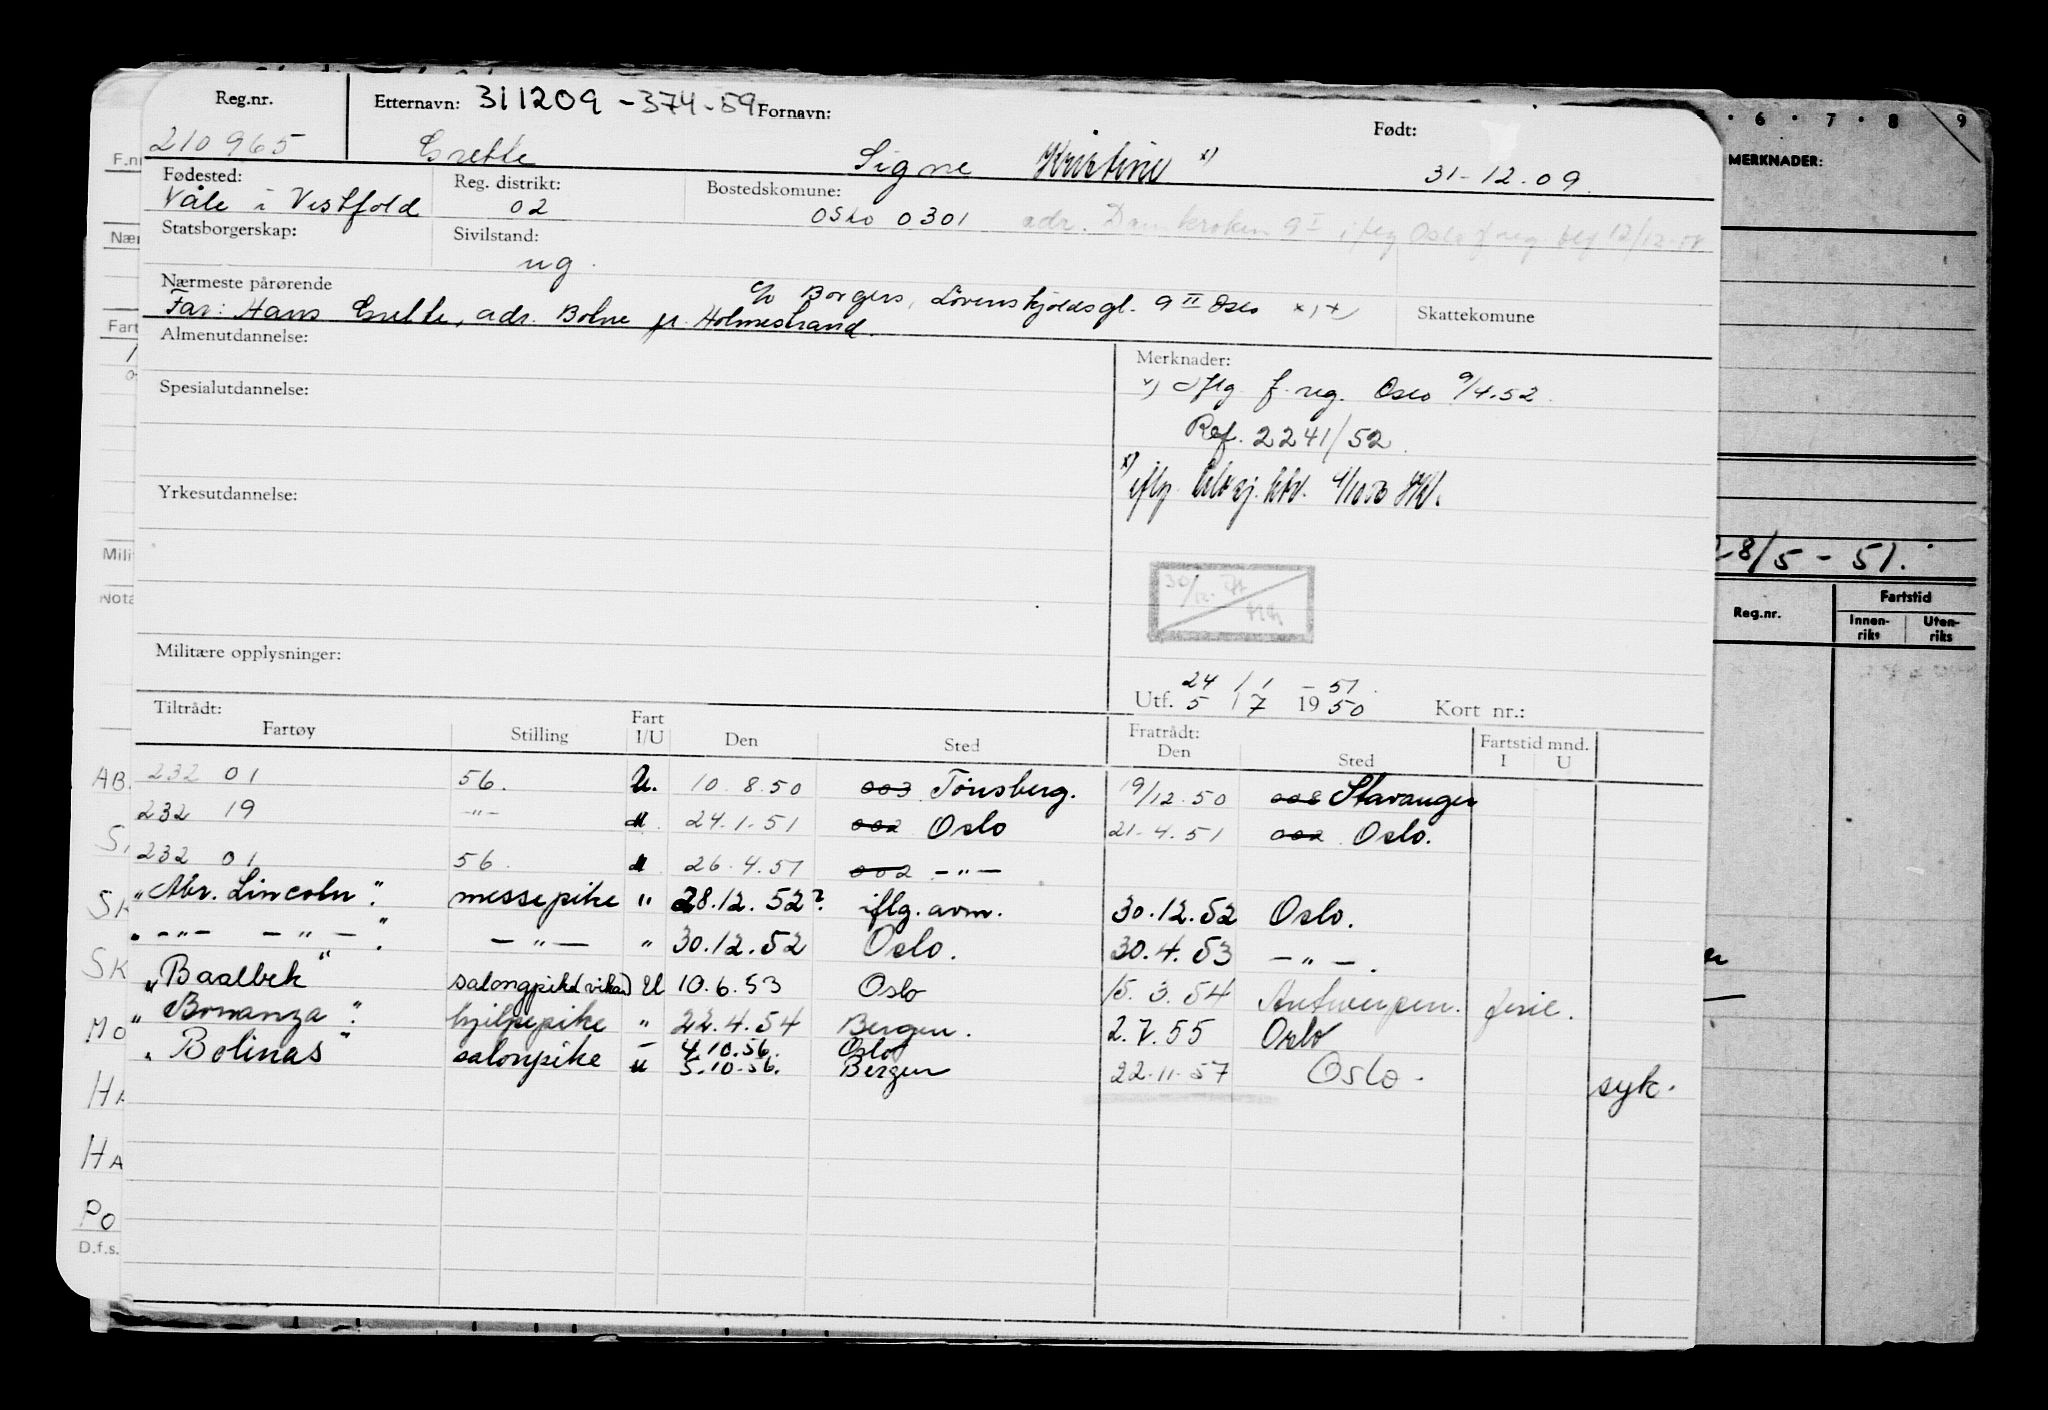 Reg.nr. Etternavn: 311209 - 374-59 Fornavn: Født:
210965 Grette Signe Kristine x) 31-12.09.
Fødested: Reg. distrikt: Bostedskomune:
Våle i Vestfold 02 Oslo 0301 adr. Damkroken 9 I
Statsborgerskap: Sivilstand:
ug.
Nærmeste pårørende c/o Borgers, Løvenskjoldsgt. 9 II Oslo
Far: Hans Grette, adr. Bolne pr. Holmestrand. Skattekomune
Almenutdannelse: Merknader:
Spesialutdannelse: iflg f.reg. Oslo 9/4.52.
Ref. 2241/52.
Yrkesutdannelse: x) iflg.
30/12
Militære opplysninger:
24 / 1 - 51.
Utf. 5 / 7 1950 Kort nr.:
Tiltrådt: Fratrådt:
Fartøy Stilling Fart I/U Den Sted Den Sted Fartstid mnd. I U
232 01 56. U. 10.8.50 003 Tønsberg. 19/12.50 008 Stavanger
232 19 -"- " 24.1.51 002 Oslo 21-4.51 002 Oslo.
232 01 56. " 26.4.51 002 -"-
"Abr. Lincoln". messepike " 28.12.52? iflg. avm. 30.12.52 Oslo.
" -"- -"- ". -"- " 30.12.52 Oslo. 30.4.53 -"-.
"Baalbek" salongpike (vikar) U 10.6.53 Oslo 15.3.54 Antwerpen. ferie.
"Bonanza". hjilpepike " 22.4.54 Bergen. 2.7.55 Oslo
"Bolinas" salonpike - 4.10.56. Oslo
u 5.10.56. Bergen 22.11.57 Oslo. syk.
F.nr
Nær
Fart
Mili
Nota
AB.
S.
SK
SK
MO
HA
HA
PO
D.f.s.
6 7 8 9
MERKNADER:
28/5 - 51.
Reg.nr. Fartstid
Innen-riks Uten-riks